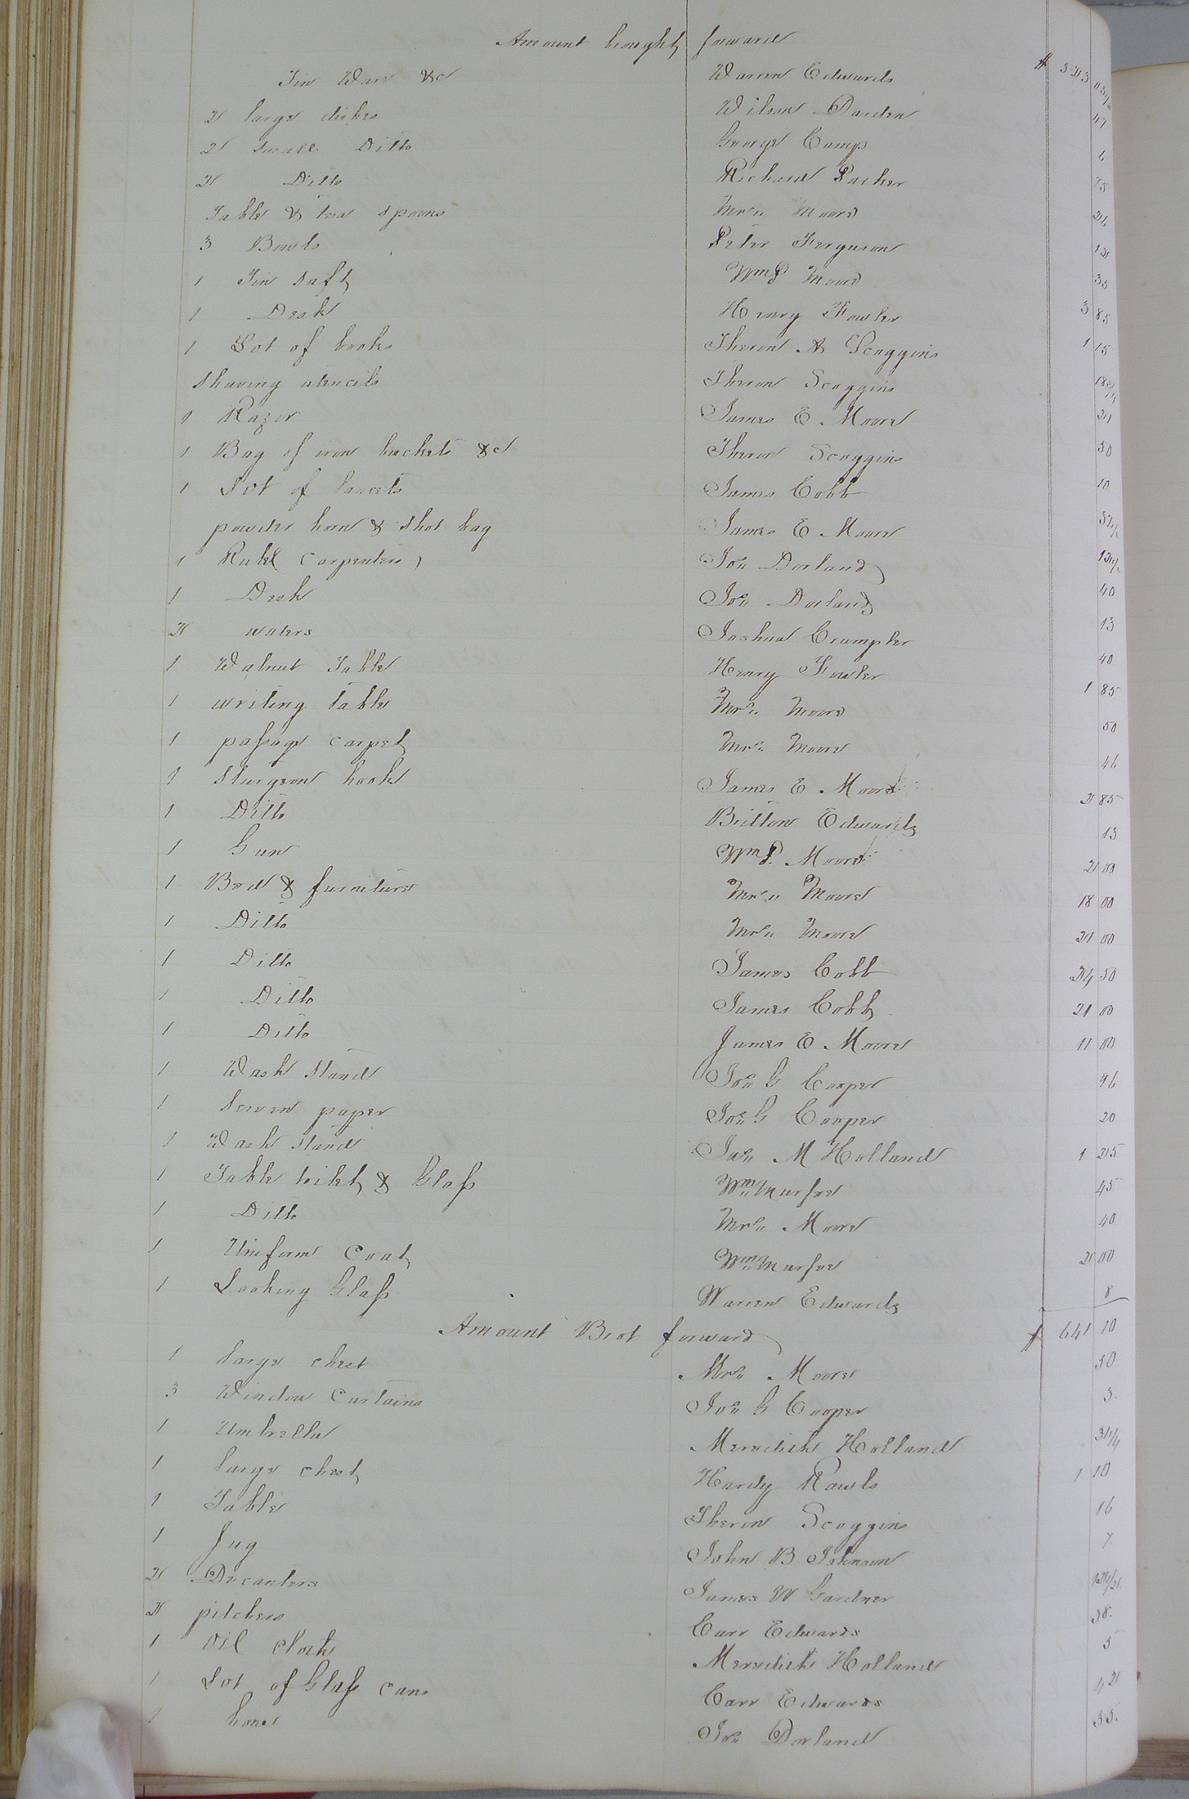 Amount brought forward
Tin Ware &c Warren Edwards $ 523
2 large dishes Wilson Darden 47
2 small Ditto George Camp 6
2 Ditto Richard Parker 75
Table & tea spoons Mrs. Moore 26
3 Bowls Peter Ferguson 12
1 Tin Saft Wm P Moore 35
1 Desk Henry Fowler 3 85
1 Lot of books Theron A Scoggins 1 15
Shaving utencils Theron Scoggins
1 Razor James E Moore 21
1 Bag of iron buckets &c Theron Scoggins 50
1 Lot of lancets James Cobb 10
powder horn & shot bag James E Moore
1 Rule Carpenters Jos. Dorland
1 Desk Jos. Dorland 40
2 waters Joshua Crumpler 13
1 Walnut Table Henry Fowler 40
1 writing table Mrs. Moore 1 85
1 passage carpet Mrs. Moore 50
1 Sturgeon hook James E Moore 46
1 Ditto Britton Edwards 2 85
1 Gun Wm P. Moore 13
1 Bed & furniture Mrs. Moore
1 Ditto Mrs. Moore 18 00
1 Ditto James Cobb 21 00
1 Ditto James Cobb 24 50
1 Ditto James E Moore 21 00
1 Wash Stand Jos. G Cooper 11 00
1 Screen paper Jos. G Cooper 96
1 Wash Stand Jas. M Holland 20
1 Table toilet & Glass Wm Murfee 1 25
1 Ditto Mrs. Moore 45
1 Uniform Coat Wm Murfee 40
1 Looking Glass Warren Edwards 2 00
8
Amount Brot forward $ 641 10
1 large chest Mrs. Moore 50
3 Window Curtains Jos. G Cooper 3
1 Umbrella Meredith Holland 31 1/4
1 large chest Hardy Rawls 1 10
1 Table Theron Scoggins 16
1 Jug John B Johnson 7
2 Decanters James W Gardner
2 pitchers Carr Edwards 58
1 Oil cloth Meredith Holland 5
1 Lot of Glass cans Carr Edwards 42
1 hone Jos. Dorland 55